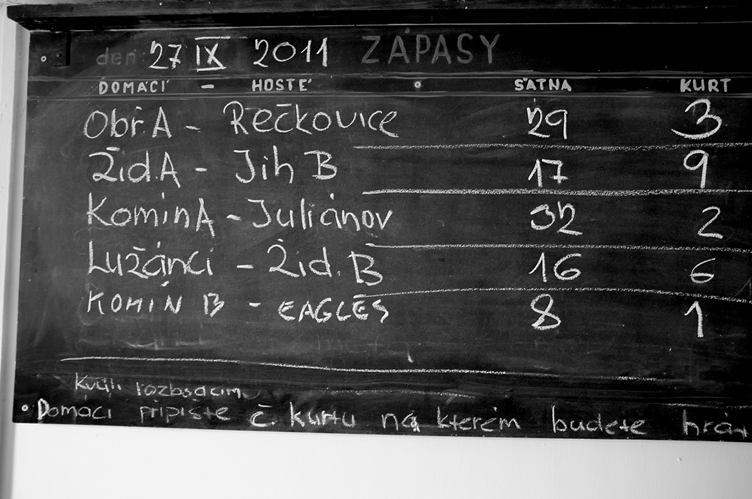 den 27 IX 2011 ZÁPASY
DOMÁCÍ - HOSTÉ ŠATNA KURT
Obř.A - Řečkovice 29 3
Žid.A - Jih B 17 9
Komín A - Juliánov 32 2
Lužánci - Žid. B 16 6
KOMÍN B - EAGLES 8 1
Kvůli
Domácí připište č. kurtu na kterém budete hrát